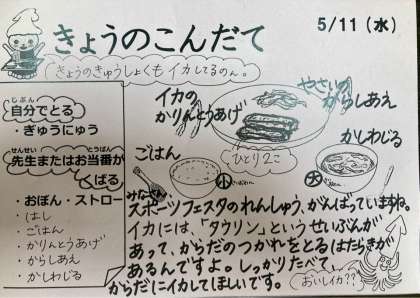 きょうのこんだて
5/11(水)
きょうのきゅうしょくもイカしてるのん。
じぶん
自分でとる
・ぎゅうにゅう
せんせい とうばん
先生またはお当番が
くばる
・おぼん・ストロー
・はし
・ごはん
・かりんとうあげ
・からしあえ
・かしわじる
イカの
かりんとうあげ
やさいの
からしあえ
ひとり2こ
ごはん
小
かしわじる
大
みなさん
スポーツフェスタのれんしゅう、がんばっていますね。
イカには、「タウリン」というせいぶんが
あって、からだのつかれをとるはたらきが
あるんですよ。しっかりたべて、
からだにイカしてほしいです。
おいしイカ??